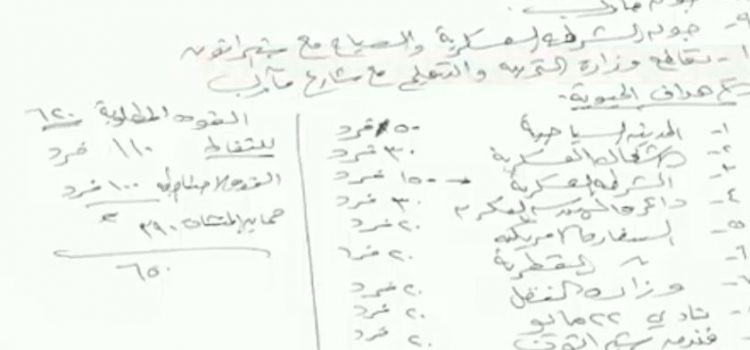 ٩- جولة الشرطة العسكرية والصياح مع شيراتون
١٠- تقاطع وزارة التربية والتعليم مع شارع مأرب
الأهداف الحيوية -
١- المدينة السياحية ٥٠ فرد
٢- الأشغال العسكرية ٣٠ فرد
٣- الشرطة العسكرية ← ١٥٠ فرد
٤- دائرة الهندسة العسكرية ٣٠ فرد
٥- السفارة الأمريكية ٢٠ فرد
٦- " القطرية ٢٠ فرد
٧- وزارة النقل ٢٠ فرد
٨- نادي ٢٢ مايو ٢٠ فرد
فندق شيراتون ٢٠ فرد
القوة المطلوبة ٦٢٠
للنقاط ١١٠ فرد
القوة الاحتياط ١٠٠ فرد
حماية المنشآت ٣٩٠
٦٥٠